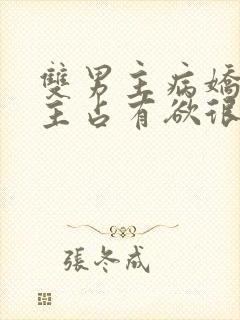 雙男主病嬌
主占有欲很
張冬成